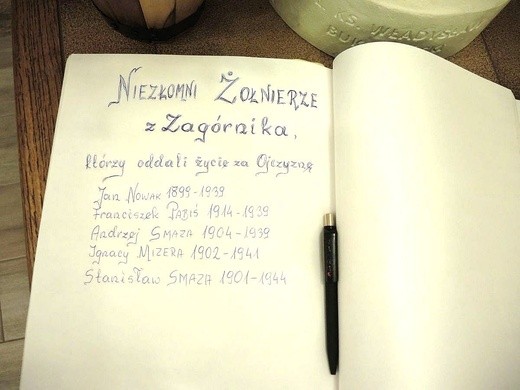 KS. WŁADYSŁAW
NIEZŁOMNI ŻOŁNIERZE
z Zagórnika,
którzy oddali życie za Ojczyznę
Jan NOWAK 1899-1939
Franciszek 1914-1939
Andrzej SMAZA 1904-1939
Ignacy MIZERA 1902-1941
Stanisław SMAZA 1901-1944